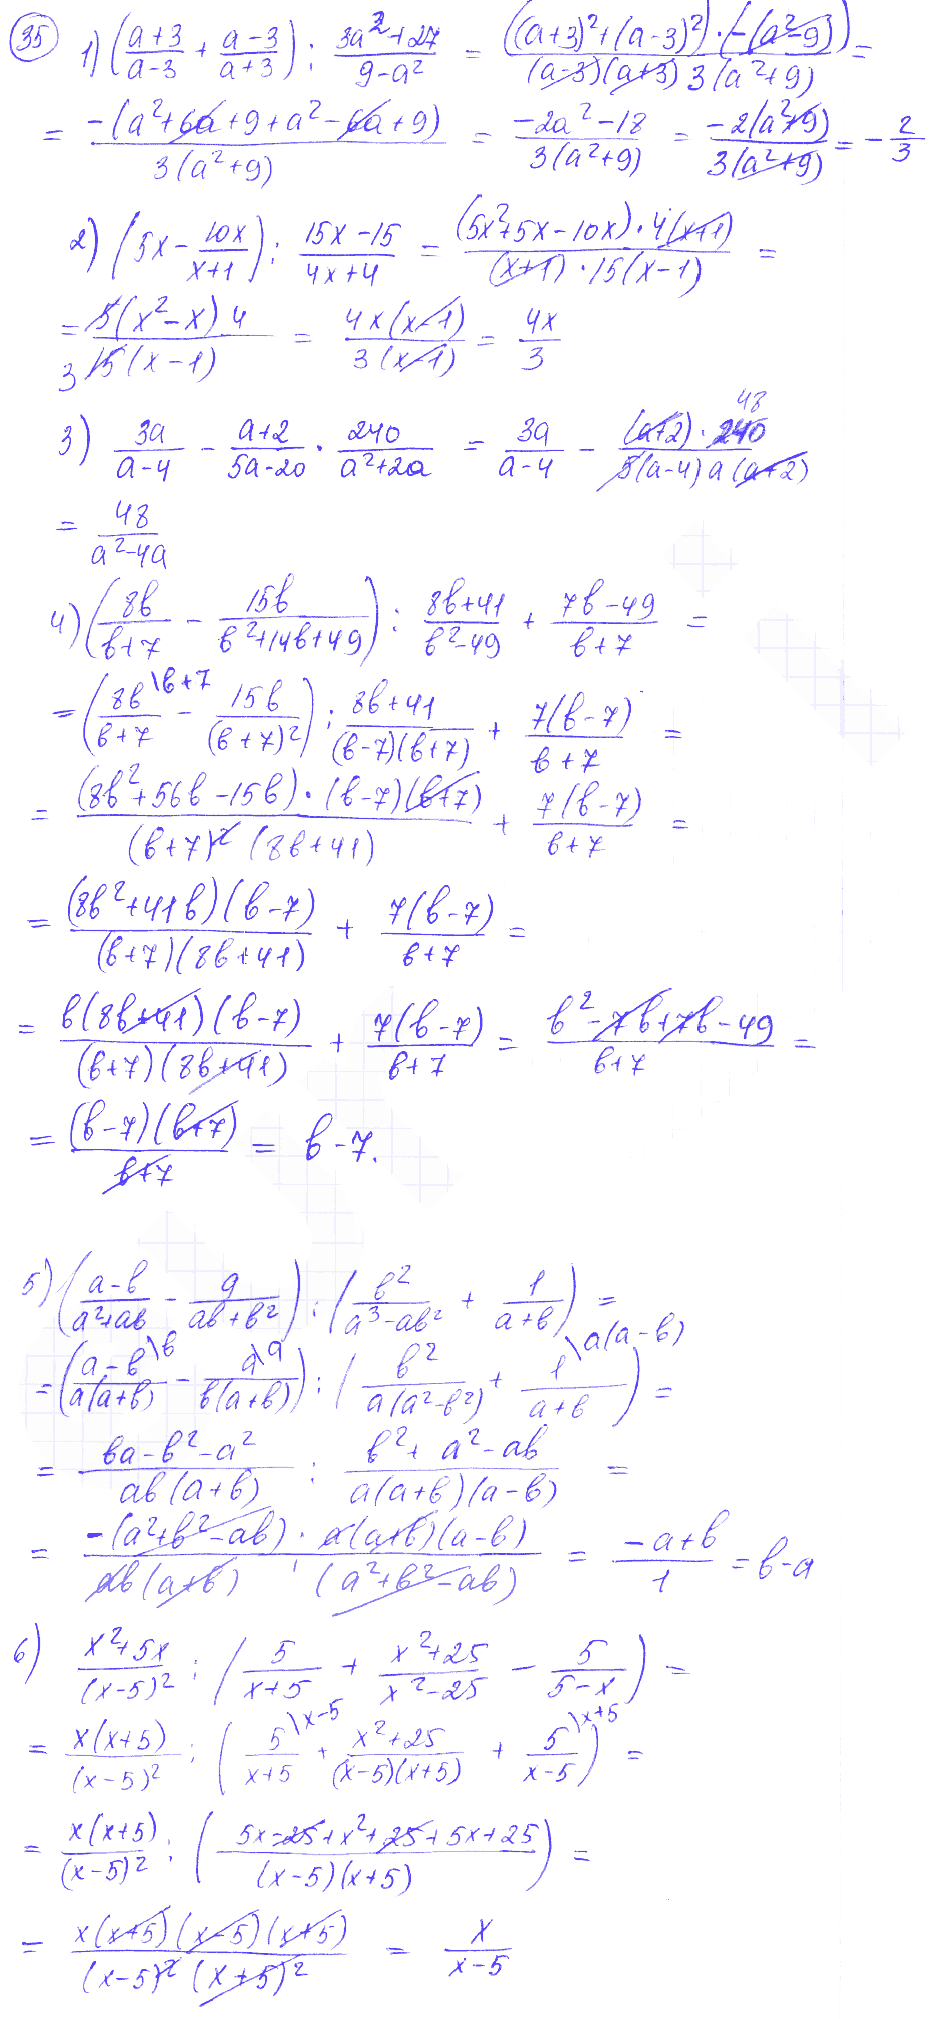 35 1) ((a+3)/(a-3) + (a-3)/(a+3)) : (3a²+27)/(9-a²) = (((a+3)²+(a-3)²)·(-(a²-9)))/((a-3)(a+3) 3(a²+9)) =
= (-(a²+6a+9+a²-6a+9))/(3(a²+9)) = (-2a²-18)/(3(a²+9)) = (-2(a²+9))/(3(a²+9)) = -2/3
2) (5x - 10x/(x+1)) : (15x-15)/(4x+4) = ((5x²+5x-10x)·4(x+1))/((x+1)·15(x-1)) =
= (5(x²-x) 4)/(3 15(x-1)) = (4x(x-1))/(3(x-1)) = 4x/3
3) 3a/(a-4) - (a+2)/(5a-20) · 240/(a²+2a) = 3a/(a-4) - ((a+2)·240 48)/(5(a-4) a(a+2))
= 48/(a²-4a)
4) (8b/(b+7) - 15b/(b²+14b+49)) : (8b+41)/(b²-49) + (7b-49)/(b+7) =
= (8b\b+7/(b+7) - 15b/(b+7)²) : (8b+41)/((b-7)(b+7)) + 7(b-7)/(b+7) =
= ((8b²+56b-15b)·(b-7)(b+7))/((b+7)² (8b+41)) + 7(b-7)/(b+7) =
= ((8b²+41b)(b-7))/((b+7)(8b+41)) + 7(b-7)/(b+7) =
= (b(8b+41)(b-7))/((b+7)(8b+41)) + 7(b-7)/(b+7) = (b²-7b+7b-49)/(b+7) =
= ((b-7)(b+7))/(b+7) = b-7.
5) ((a-b)/(a²+ab) - a/(ab+b²)) : (b²/(a³-ab²) + 1/(a+b)) =
= ((a-b\b)/(a(a+b)) - a\a/(b(a+b))) : (b²/(a(a²-b²)) + 1\a(a-b)/(a+b)) =
= (ba-b²-a²)/(ab(a+b)) : (b²+a²-ab)/(a(a+b)(a-b)) =
= (-(a²+b²-ab)·a(a+b)(a-b))/(ab(a+b) · (a²+b²-ab)) = (-a+b)/1 = b-a
6) (x²+5x)/(x-5)² : (5/(x+5) + (x²+25)/(x²-25) - 5/(5-x)) =
= x(x+5)/(x-5)² : (5\x-5/(x+5) + (x²+25)/((x-5)(x+5)) + 5\x+5/(x-5)) =
= x(x+5)/(x-5)² : ((5x-25+x²+25+5x+25)/((x-5)(x+5))) =
= (x(x+5)(x-5)(x+5))/((x-5)² (x+5)²) = x/(x-5)